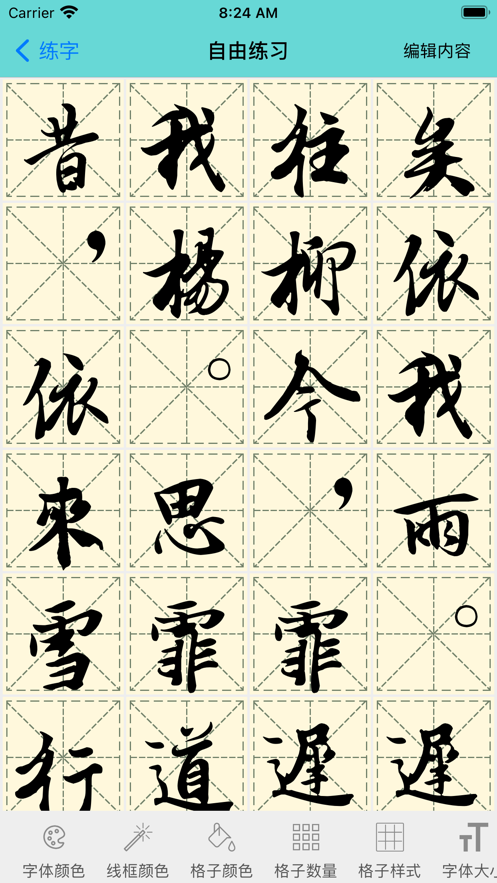 Carrier 8:24 AM
练字 自由练习 编辑内容
昔我往矣
，楊柳依
依。今我
來思，雨
雪霏霏。
行道遲遲
字体颜色 线框颜色 格子颜色 格子数量 格子样式 字体大